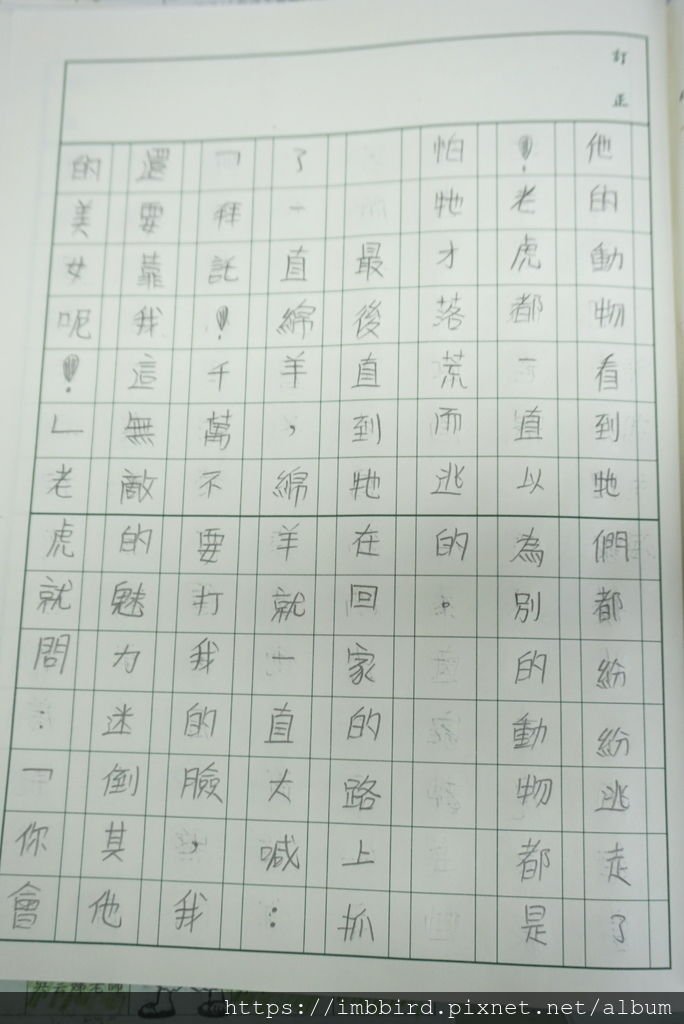 訂正
他的動物看到牠們都紛紛逃走了
！老虎都一直以為別的動物都是
怕牠才落荒而逃的。
最後直到牠在回家的路上抓
了一直綿羊，綿羊就一直大喊：
「拜託！千萬不要打我的臉，我
還要靠我這無敵的魅力迷倒其他
的美女呢！」老虎就問：「你會
https://imbbird.pixnet.net/album